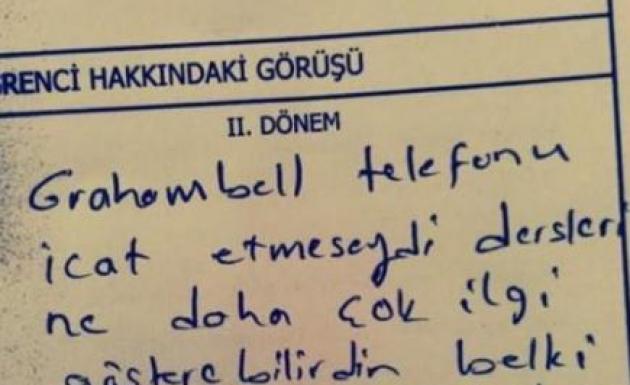 RENCİ HAKKINDAKİ GÖRÜŞÜ
II. DÖNEM
Grahambell telefonu
icat etmeseydi dersleri
ne daha çok ilgi
gösterebilirdin belki